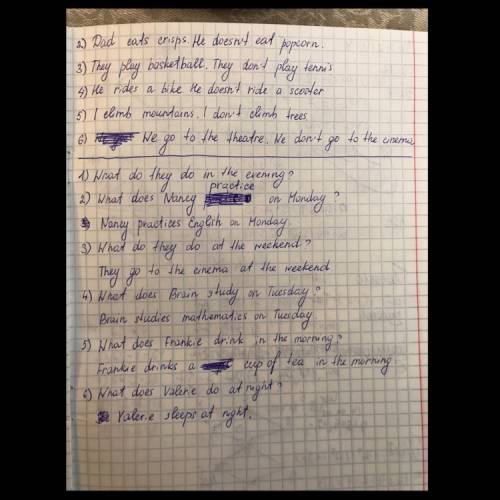 2) Dad eats crisps. He doesn't eat popcorn.
3) They play basketball. They don't play tennis
4) He rides a bike He doesn't ride a scooter
5) I climb mountains. I don't climb trees
6) We go to the theatre. We don't go to the cinema
1) What do they do in the evening?
practice
2) What does Nancy on Monday?
Nancy practices English on Monday.
3) What do they do at the weekend?
They go to the cinema at the weekend
4) What does Brain study on Tuesday?
Brain studies mathematics on Tuesday
5) What does Frankie drink in the morning?
Frankie drinks a cup of tea in the morning.
6) What does Valerie do at night?
Valerie sleeps at night.